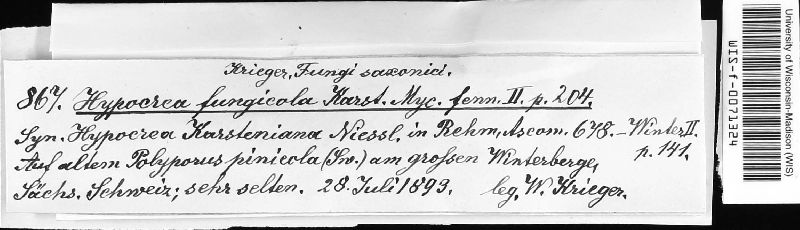 Krieger, Fungi saxonici.
867. Hypocrea fungicola Karst. Myc. fenn. II. p. 204.
Syn. Hypocrea Karsteniana Niessl. in Rehm, Ascom. 678. - Winter II. p. 141.
Auf altem Polyporus pinicola (Sw.) am grossen Winterberge,
Sächs. Schweiz; sehr selten. 28. Juli 1893. leg. W. Krieger.
University of Wisconsin-Madison (WIS)
WIS-f-0071334